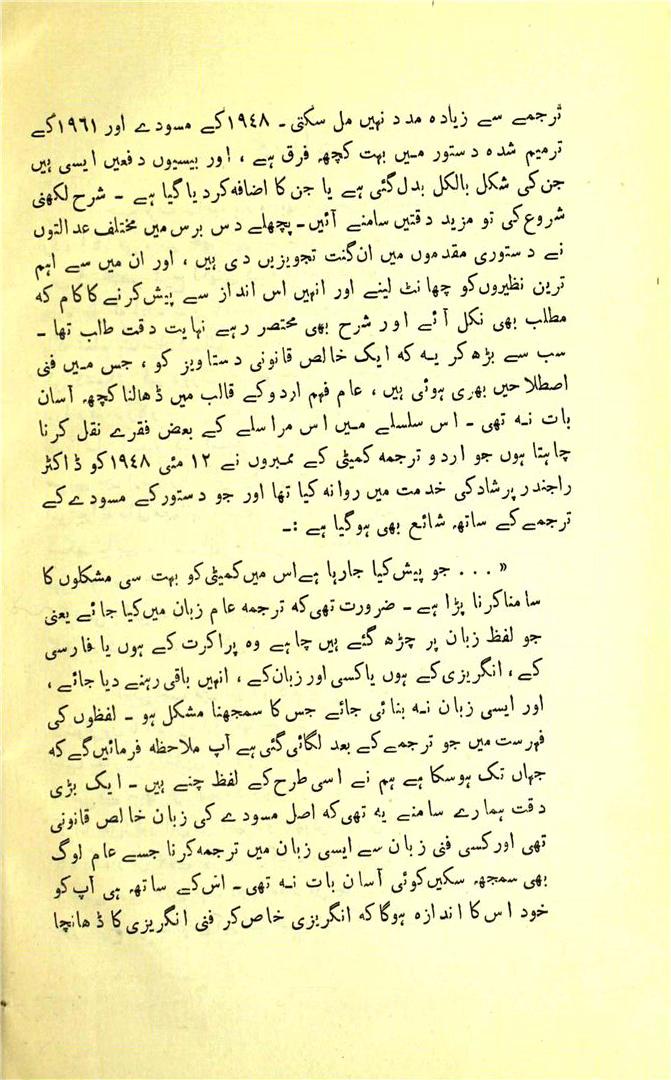 ترجمے سے زیادہ مدد نہیں مل سکتی ـ ١٩٤٨ کے مسودے اور ١٩٦١ کے
ترمیم شدہ دستور میں بہت کچھ فرق ہے ، اور بیسیوں دفعیں ایسی ہیں
جن کی شکل بالکل بدل گئی ہے یا جن کا اضافہ کردیا گیا ہے ـ شرح لکھنی
شروع کی تو مزید دقتیں سامنے آئیں ـ پچھلے دس برس میں مختلف عدالتوں
نے دستوری مقدموں میں ان گنت تجویزیں دی ہیں ، اور ان میں سے اہم
ترین نظیروں کو چھانٹ لینے اور انہیں اس انداز سے پیش کرنے کا کام کہ
مطلب بھی نکل آئے اور شرح بھی مختصر رہے نہایت دقت طلب تھا ـ
سب سے بڑھ کر یہ کہ ایک خالص قانونی دستاویز کو ، جس میں فنی
اصطلاحیں بھری ہوئی ہیں ، عام فہم اردو کے قالب میں ڈھالنا کچھ آسان
بات نہ تھی ـ اس سلسلے میں اس مراسلے کے بعض فقرے نقل کرنا
چاہتا ہوں جو اردو ترجمہ کمیٹی کے ممبروں نے ١٢ مئی ١٩٤٨ کو ڈاکٹر
راجندر پرشاد کی خدمت میں روانہ کیا تھا اور جو دستور کے مسودے کے
ترجمے کے ساتھ شائع بھی ہوگیا ہے :ـ
« . . . جو پیش کیا جارہا ہے اس میں کمیٹی کو بہت سی مشکلوں کا
سامنا کرنا پڑا ہے ـ ضرورت تھی کہ ترجمہ عام زبان میں کیا جائے یعنی
جو لفظ زبان پر چڑھ گئے ہیں چاہے وہ پراکرت کے ہوں یا فارسی
کے ، انگریزی کے ہوں یا کسی اور زبان کے ، انہیں باقی رہنے دیا جائے ،
اور ایسی زبان نہ بنائی جائے جس کا سمجھنا مشکل ہو ـ لفظوں کی
فہرست میں جو ترجمے کے بعد لگائی گئی ہے آپ ملاحظہ فرمائیں گے کہ
جہاں تک ہوسکا ہے ہم نے اسی طرح کے لفظ چنے ہیں ـ ایک بڑی
دقت ہمارے سامنے یہ تھی کہ اصل مسودے کی زبان خالص قانونی
تھی اور کسی فنی زبان سے ایسی زبان میں ترجمہ کرنا جسے عام لوگ
بھی سمجھ سکیں کوئی آسان بات نہ تھی ـ اس کے ساتھ ہی آپ کو
خود اس کا اندازہ ہوگا کہ انگریزی خاص کر فنی انگریزی کا ڈھانچا